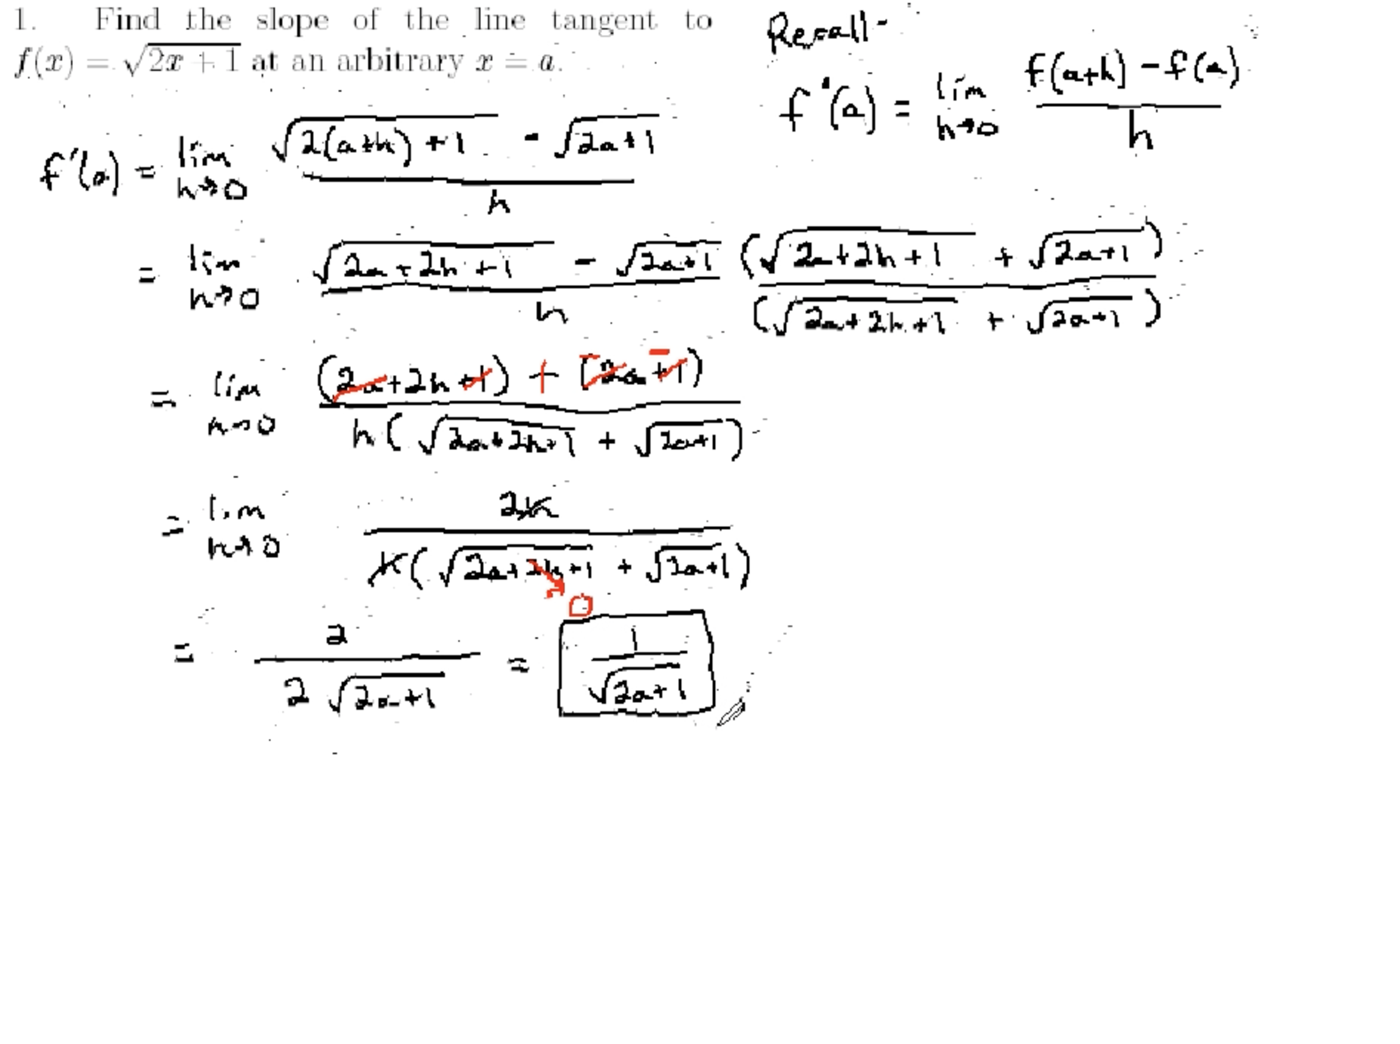 1. Find the slope of the line tangent to
f(x) = √(2x + 1) at an arbitrary x = a.
Recall -
f'(a) = lim h→0 (f(a+h) - f(a)) / h
f'(a) = lim h→0 (√(2(a+h)+1) - √(2a+1)) / h
= lim h→0 (√(2a+2h+1) - √(2a+1)) / h (√(2a+2h+1) + √(2a+1)) / (√(2a+2h+1) + √(2a+1))
= lim h→0 ((2a+2h+1) + (-2a-+1)) / h(√(2a+2h+1) + √(2a+1))
= lim h→0 2h / h(√(2a+2h+1) + √(2a+1))
0
= 2 / 2√(2a+1) = 1 / √(2a+1)